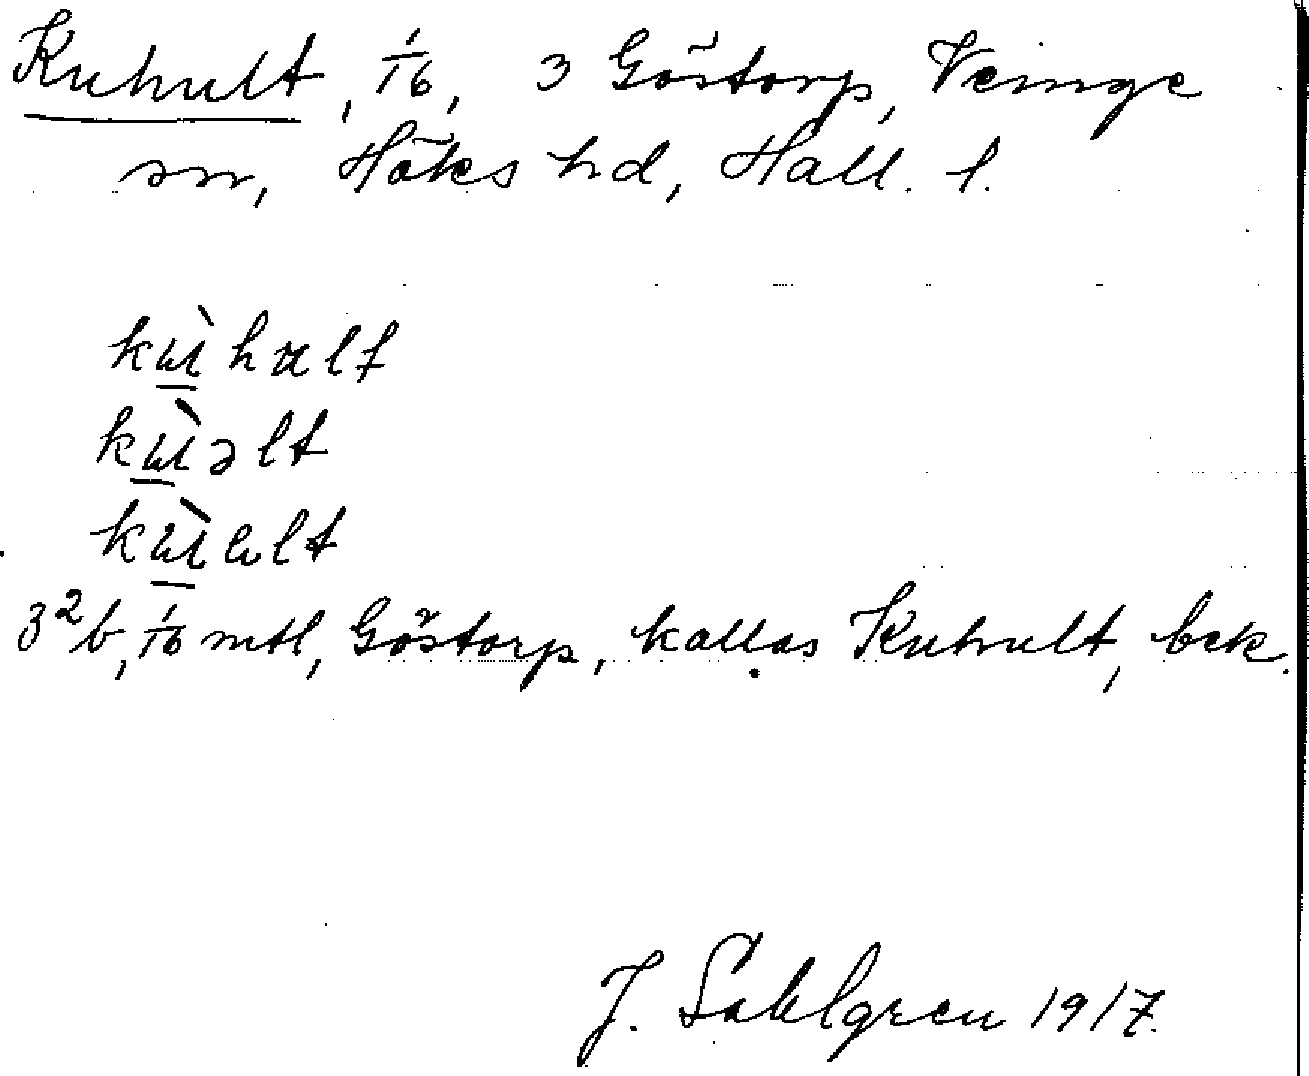 Kuhult, 1/16, 3 Göstorp, Veinge
sn, Höks hd, Hall. l.
kùhult
kùəlt
kùult
3²b, 1/16 mtl, Göstorp, kallas Kuhult, bek.
J. Sahlgren 1917.